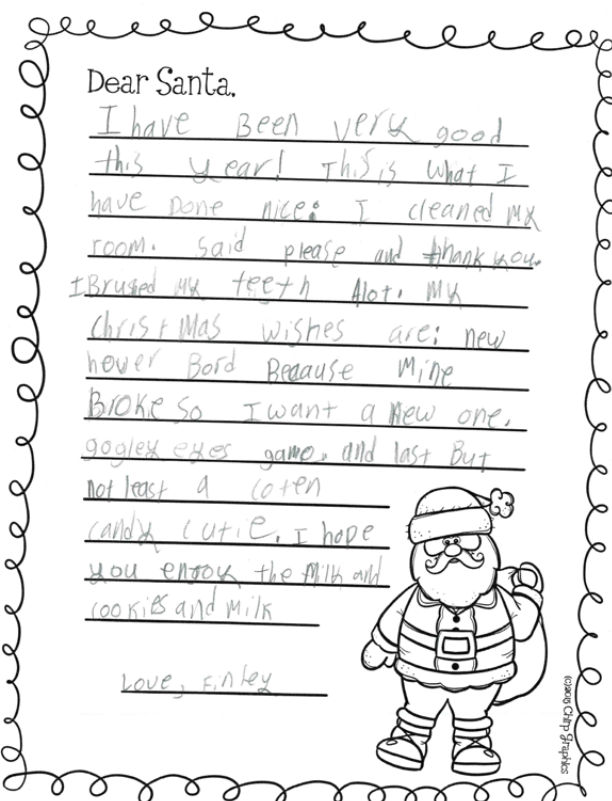 Dear Santa,
I have Been very good
this year! This is what I
have Done nice: I cleaned my
room. Said please and thank you.
I Brushed my teeth Alot. My
Christmas wishes are: new
hover Bord Because Mine
Broke so I want a New one.
gogley eyes game. and last But
not least a coten
candy cutie. I hope
you enjoy the Milk and
cookies and Milk
Love, Finley
(c)2015 Chirp Graphics